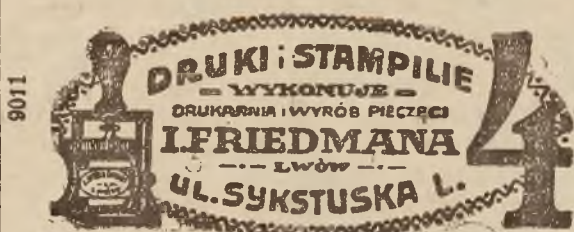 9011
DRUKI i STAMPILIE
WYKONUJE
DRUKARNIA i WYRÓB PIECZĘCI
I. FRIEDMANA
LWÓW
UL. SYKSTUSKA L. 4